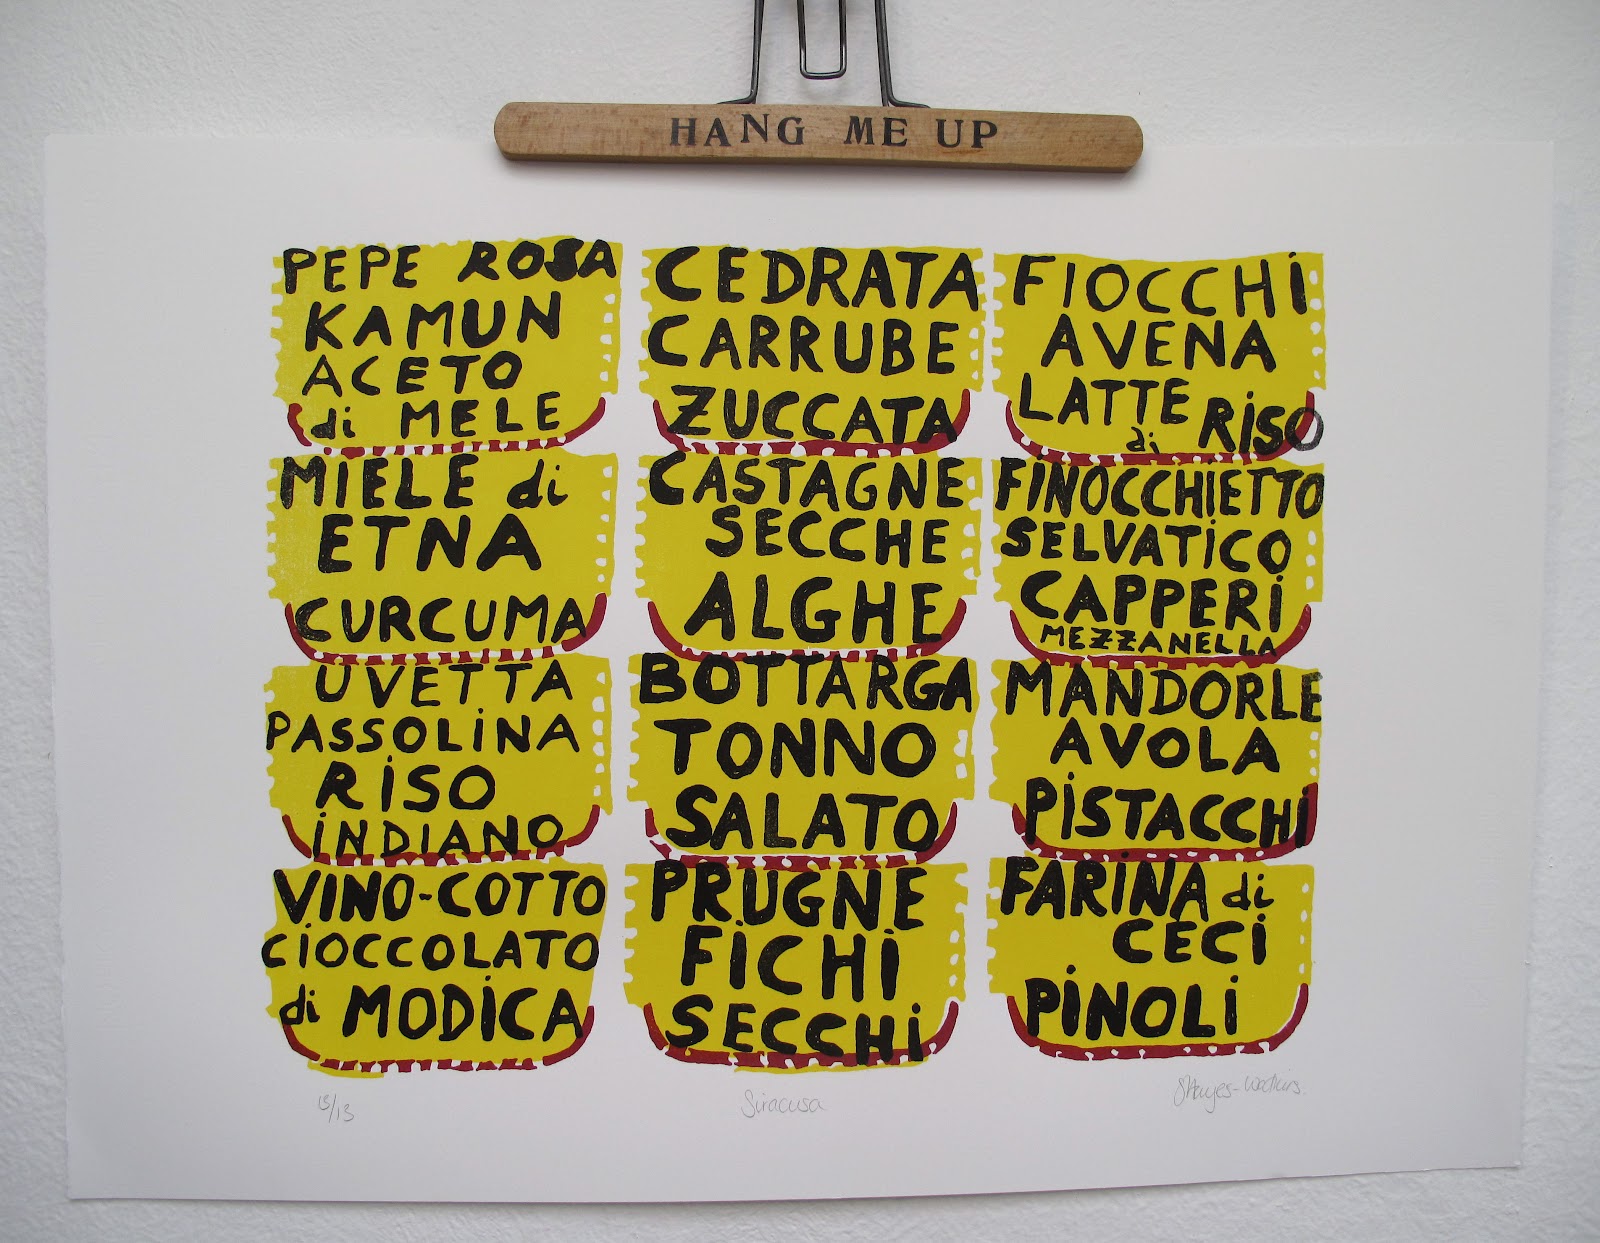 HANG ME UP
PEPE ROSA
KAMUN
ACETO
di MELE
MIELE di
ETNA
CURCUMA
UVETTA
PASSOLINA
RISO
INDIANO
VINO-COTTO
CIOCCOLATO
di MODICA
CEDRATA
CARRUBE
ZUCCATA
CASTAGNE
SECCHE
ALGHE
BOTTARGA
TONNO
SALATO
PRUGNE
FICHI
SECCHI
FIOCCHI
AVENA
LATTE
di RISO
FINOCCHIETTO
SELVATICO
CAPPERI
MEZZANELLA
MANDORLE
AVOLA
PISTACCHI
FARINA di
CECI
PINOLI
13/13
Siracusa
SHayes-Watkins.